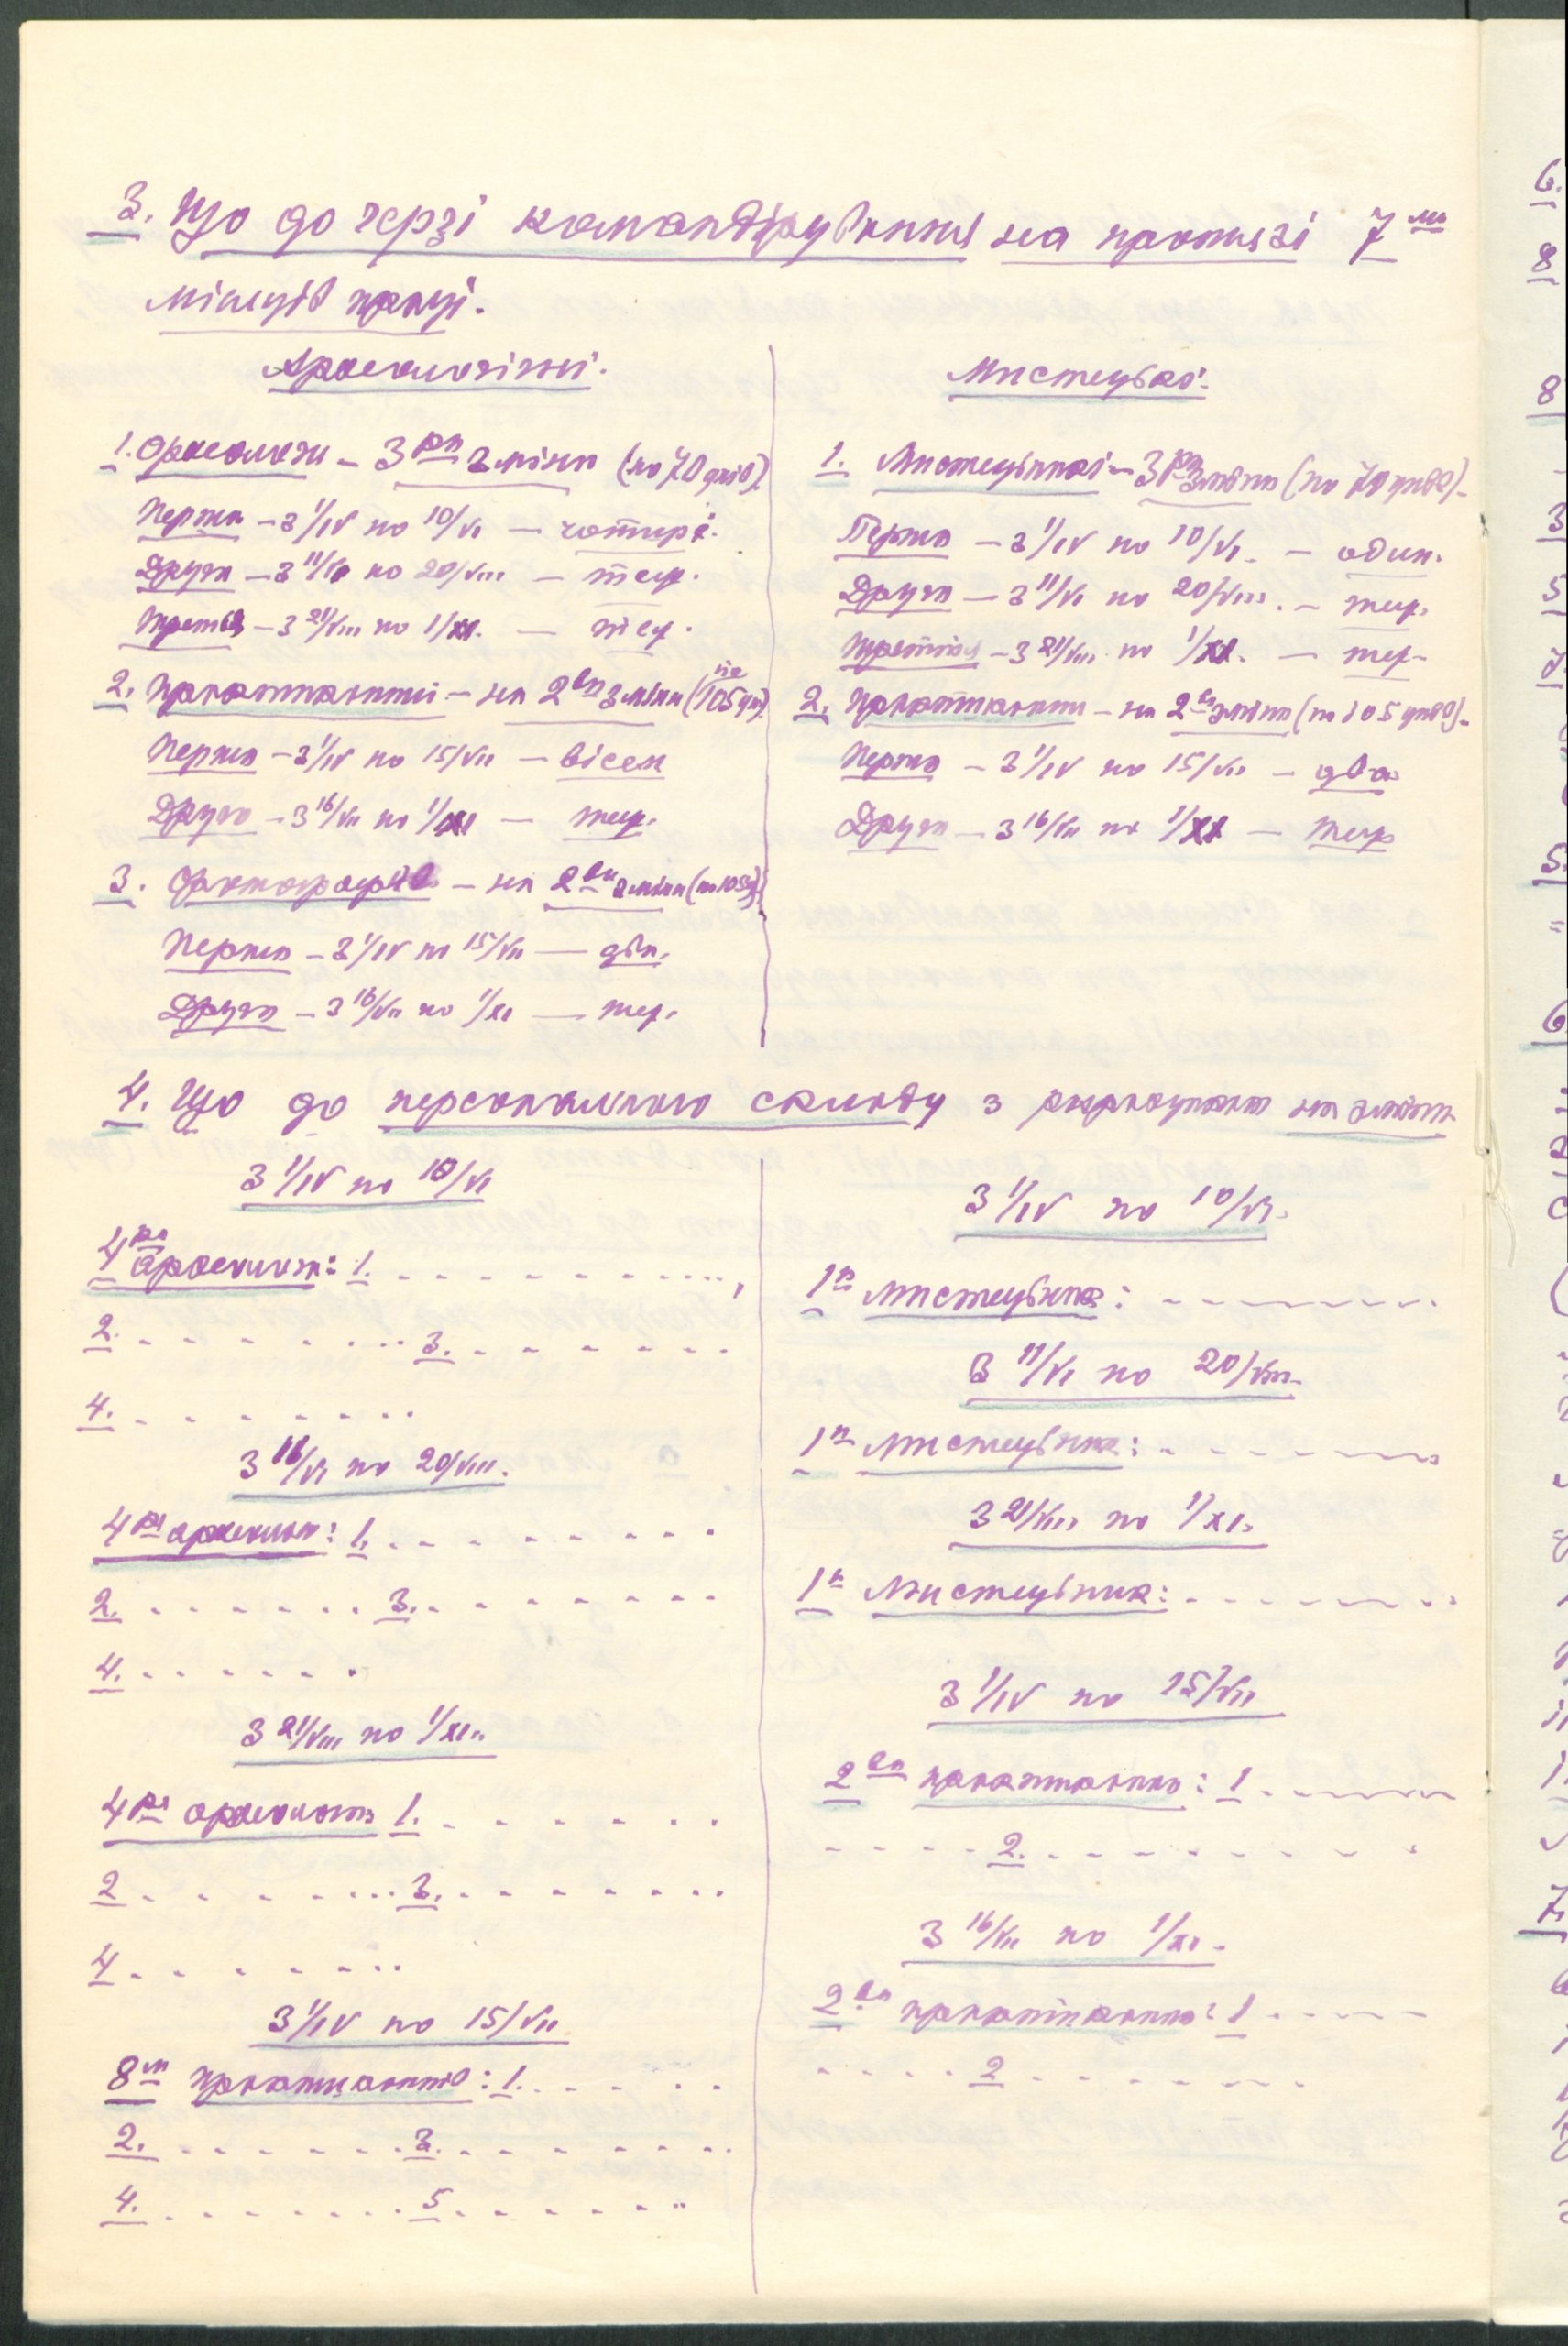 3. Що до черзі командірування на протязі 7ми
місяців праці.
Археологічні.
1. Археологи – 3ри зміни (по 70 днів).
Перша – з 1/IV по 10/VI – чотирі.
Друга – з 11/VI по 20/VIII – теж.
Третя – з 21/VIII по 1/XI. – теж.
2. Практиканти – на 2ві зміни (по 105 дн)
Перша – з 1/IV по 15/VII – вісем
Друга – з 16/VII по 1/XI – теж.
3. Фотографів – на 2ві зміни (по 105 д)
Перша – з 1/IV по 15/VII – два.
Друга – з 16/VII по 1/XI – теж.
Мистецькі.
1. Мистецівникі – 3ри зміни (по 70 днів).
Перша – з 1/IV по 10/VI. – один.
Друга – з 11/VI по 20/VIII. – теж.
Третя – з 21/VIII по 1/XI. – теж.
2. Практиканти – на 2ві зміни (по 105 днів).
Перша – з 1/IV по 15/VII – два
Друга – з 16/VII по 1/XI – теж
4. Що до персонального складу з на зміни
З 1/IV по 10/VI
4ри археологи: 1. . . . . . . . . . ,
2. . . . . . . . 3. . . . . . . .
4. . . . . . . . .
З 11/VI по 20/VIII.
4ри археологи: 1. . . . . . . . .
2. . . . . . . . 3. . . . . . . .
4. . . . . . .
З 21/VIII по 1/XI.
4ри археологи 1. . . . . . . .
2 . . . . . . . 3. . . . . . . .
4 . . . . . . .
З 1/IV по 15/VII
8м практикантів: 1. . . . . .
2. . . . . . . . 3. . . . . . . .
4. . . . . . . . 5. . . . . . .
З 1/IV по 10/VI.
1н мистецівник: - - - - - - -
З 11/VI по 20/VIII.
1н мистецівник: - - - - - - -
З 21/VIII по 1/XI.
1н мистецівник: - - - - - - -
З 1/IV по 15/VII
2ва практиканти: 1. - - - - -
- - - - 2. - - - - - - - -
З 16/VII по 1/XI.
2ва практиканти: 1 - - - - -
- - - - 2 - - - - - - -